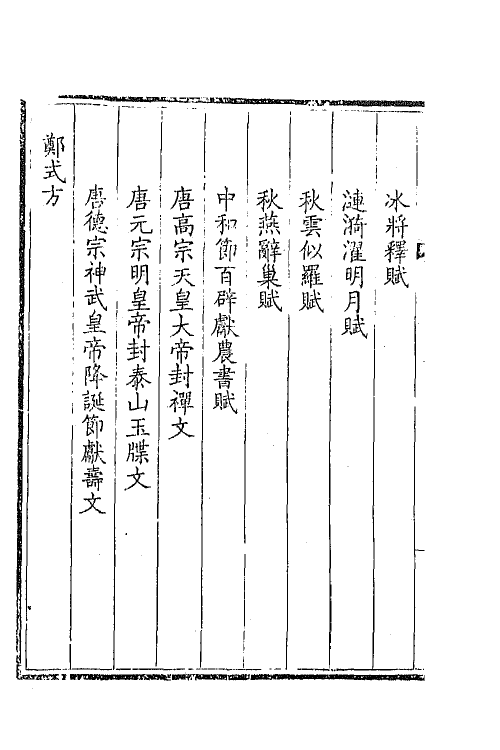 冰將釋賦
漣漪濯明月賦
秋雲似羅賦
秋燕辭巢賦
中和節百辟獻農書賦
唐高宗天皇大帝封禪文
唐元宗明皇帝封泰山玉牒文
唐德宗神武皇帝降誕節獻壽文
鄭式方